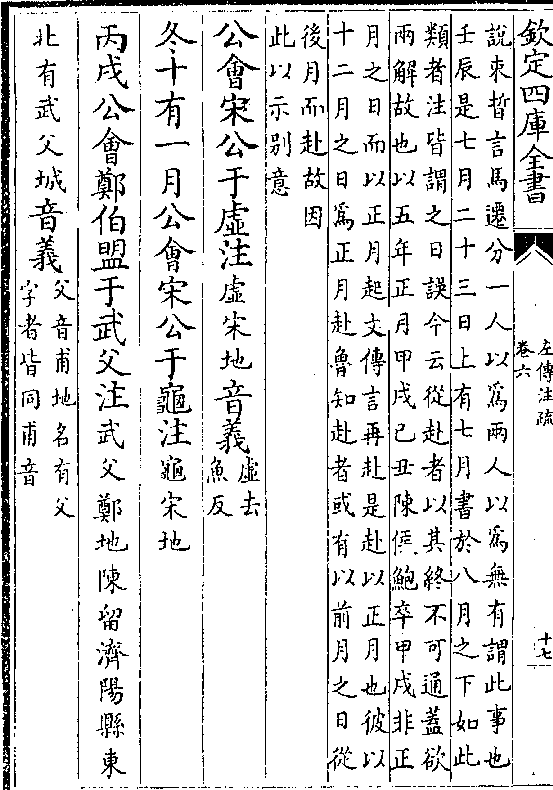 欽定四庫全書
左傳注疏
卷六
十七
説束晳言馬遷分一人以爲兩人以爲無有謂此事也
壬辰是七月二十三日上有七月書於八月之下如此
類者注皆謂之日誤今云從赴者以其終不可通蓋欲
兩解故也以五年正月甲戌己丑陳侯鮑卒甲戌非正
月之日而以正月起文傳言再赴是赴以正月也彼以
十二月之日爲正月赴魯知赴者或有以前月之日從
後月而赴故因
此以示别意
公會宋公于虚注虚宋地音義虚去
魚反
冬十有一月公會宋公于龜注龜宋地
丙戌公會鄭伯盟于武父注武父鄭地陳留濟陽縣東
北有武父城音義父音甫地名有父
字者皆同甫音